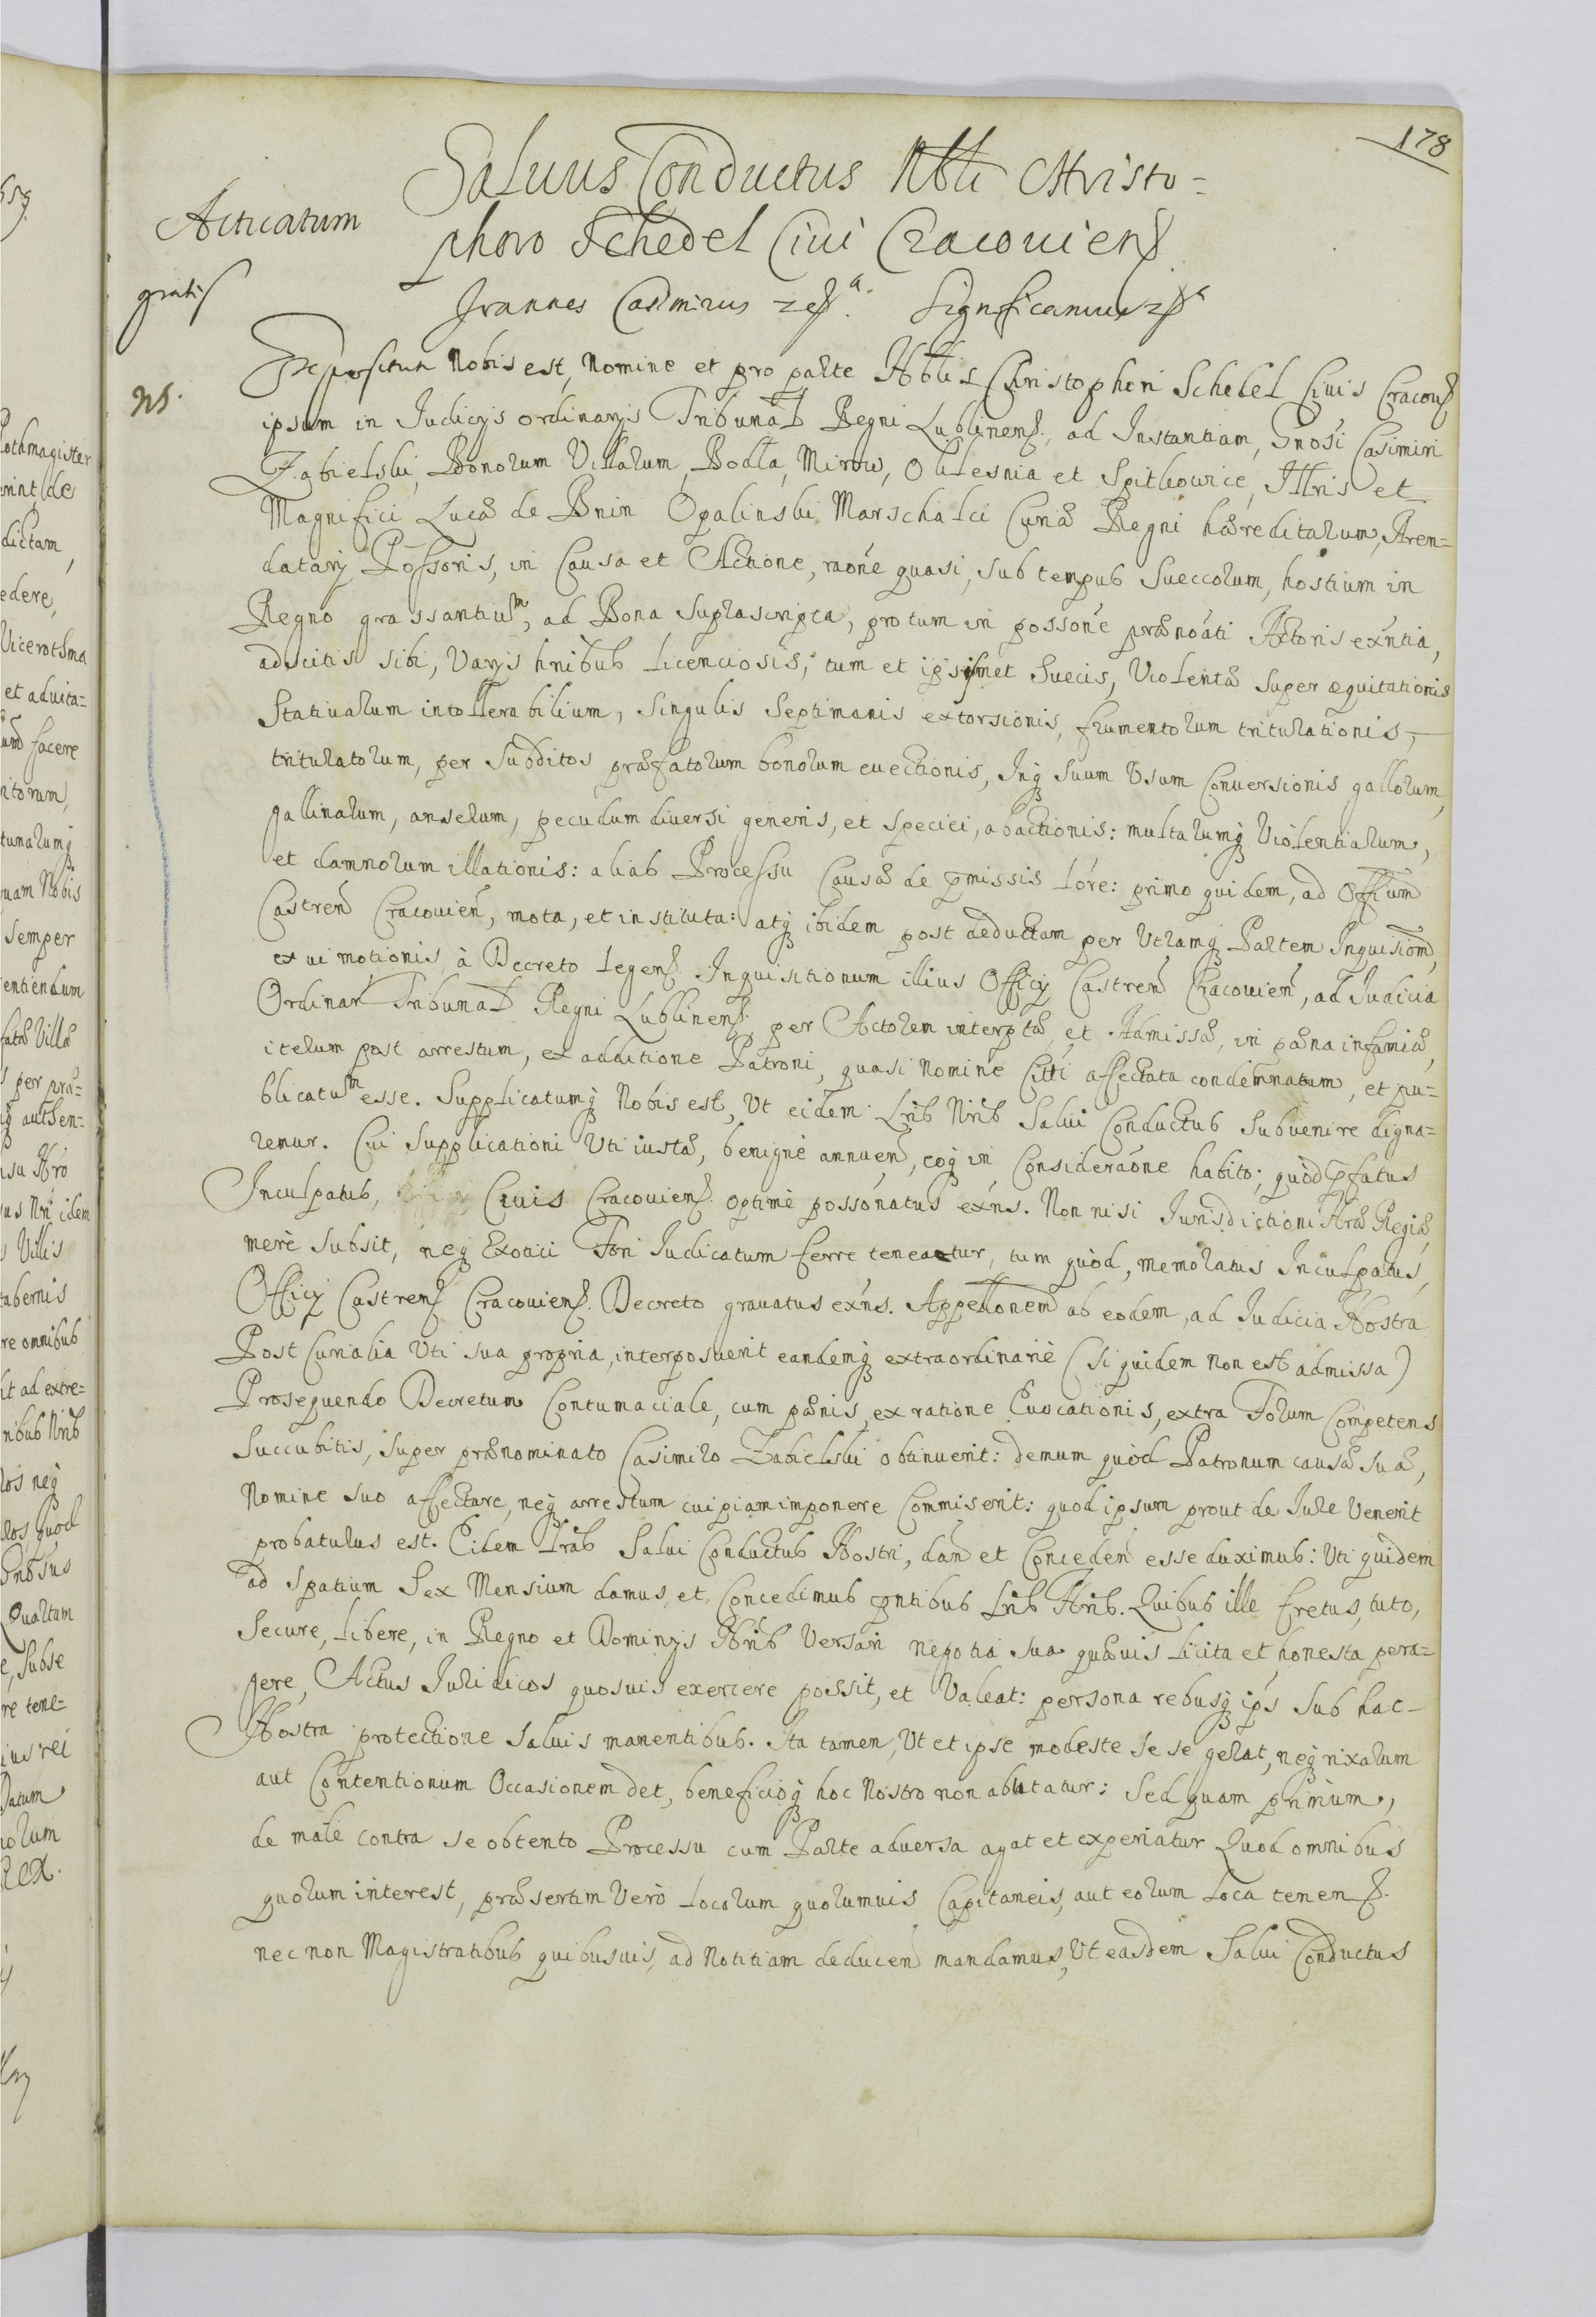 178
Saluus Conductus Nbli Christo=
phoro Schedel Ciui Cracouiens
Acticatum
gratis
Joannes Casimirus etca. Significamus etca
NS.
Expositum Nobis est, Nomine et pro parte Nblis Christopheri Schedel Ciuis Cracous
ipsum in Judicÿs ordinarÿs Tribunal Regni Lublinens., ad Instantiam, Gnosi Casimiri
Zabielski, Bonorum Villarum, Bodla, Mirow, Oklesnia et Spitkowice, Illris et
Magnifici Lucæ de Bnin Opalinski Marschalci Curiæ Regni hæreditarum, Aren=
datarÿ Possoris, in Causa et Actione, raône quasi, sub tempus Sueccorum, hostium in
Regno grassantium, ad Bona suprascripta, pro tum in possone prænoati Actoris exntia,
adscitis sibi, Varÿs hnibus licenciosis, tum et ipsismet Suecis, Violentæ super æquitationis
Statiuarum intollerabilium, singulis septimanis extorsionis, frumentorum triturationis,
trituratorum, per subditos præfatorum bonorum euectionis, Inq suum Usum Conuersionis gallorum,
gallinarum, anserum, pecudum diversi generis, et speciei, abactionis: multarumq Violentiarum,
et damnorum illationis: alias Processu Causæ de pmissis lóre: primo quidem, ad Offium
Castren Cracouien, mota, et instituta: atq ibidem post deductam per Utramq Partem Inquisiom,
ex ui motionis, à Decreto legens. Inquisitionum illius Officÿ Castren Cracouien, ad Judicia
Ordinar Tribunal Regni Lublinens. per Actorem interptæ, et Admissæ, in pæna infamiæ,
iterum post arrestum, ex additione Patroni, quasi Nomine Citti affectata condemnatum, et pu=
blicatum esse. Supplicatumq Nobis est, Ut eidem Lris Nris Salui Conductus subuenire digna=
remur. Cui supplicationi Uti iustæ, benignè annuen, eoq in Consideraône habito; quòd pfatus
Inculpatus, Ciuis Cracouiens. optimè possonatus exns. Non nisi Jurisdictioni Nræ Regiæ,
merè subsit, neq Exotici Fori Judicatum ferre teneatur, tum quòd, memoratus Inculpatus,
Officÿ Castrens Cracouiens. Decreto grauatus exns. Appellonem ab eodem, ad Judicia Nostra
Post Curialia Uti sua propria, interposuerit eandemq extraordinariè (siquidem non est admissa)
Prosequendo Decretum Contumaciale, cum pænis, ex ratione Euocationis, extra Forum Competens
Succubitis, super prænominato Casimiro Zabielski obtinuerit: demum quòd Patronum causæ suæ,
Nomine suo affectare, neq arrestum cuipiam imponere Commiserit: quod ipsum prout de Jure Venerit
probaturus est. Eidem Lras Salui Conductus Nostri, dan et Conceden esse duximus: Uti quidem
ad spatium Sex Mensium damus, et Concedimus pntibus Lris Nris. Quibus ille fretus, tuto,
Secure, libere, in Regno et Dominÿs Nris Versari negotia sua quæuis licita et honesta pera=
gere, Actus Juridicos quosuis exercere possit, et Valeat: persona rebusq ips sub hac
Nostra protectione saluis manentibus. Ita tamen, Ut et ipse modeste se se gerat, neq rixarum
aut Contentionum Occasionem det, beneficioq hoc Nostro non abutatur: Sed quam primum,
de malè contra se obtento Processu cum Parte aduersa agat et experiatur Quod omnibus
quorum interest, præsertim Verò locorum quorumuis Capitaneis, aut eorum loca tenens.
nec non Magistratibus quibusuis, ad Notitiam deducen mandamus, Ut easdem Salui Conductus